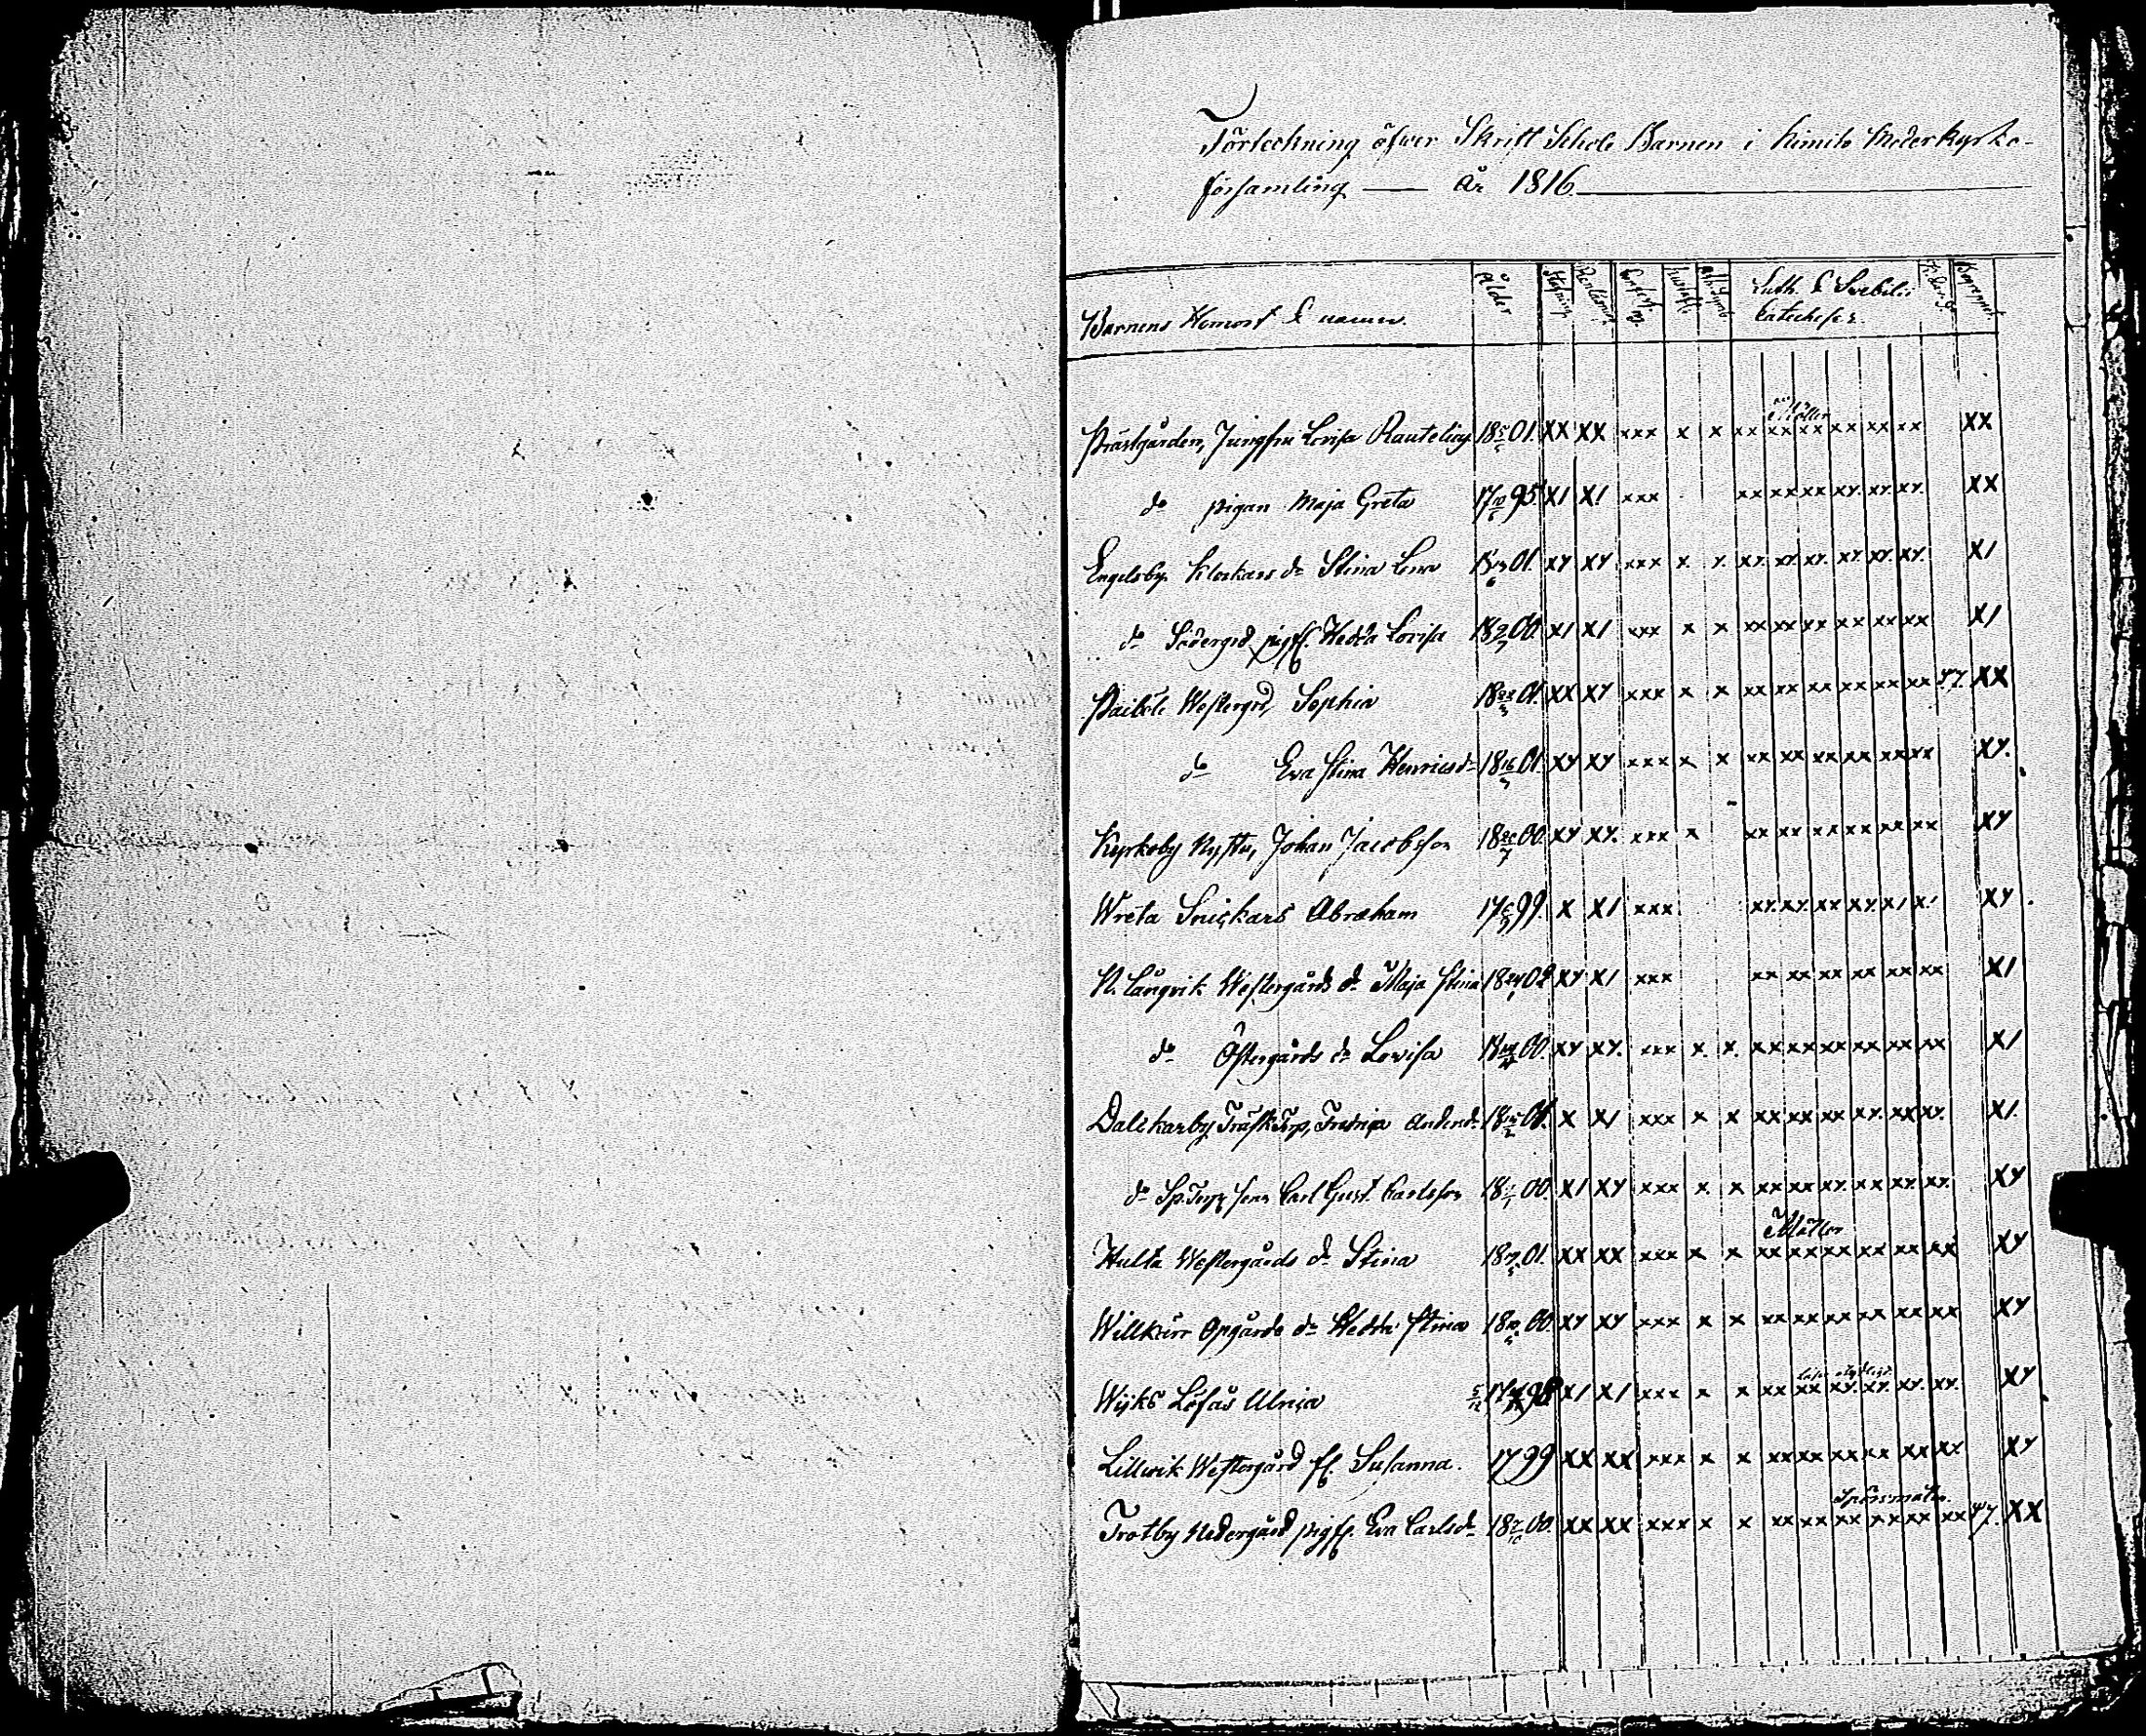 Förteckning öfwer Skrift Schole Barnen i Kimito Moderkyrko-
församling — År 1816
Barnens Hemort & namn. Ålder Stafning Luth. & Svebilii Begreppet
Catecheser.
Möller
Prästgården, Jungfru Lovisa Rautelius 18 5 01. XX XX xxx x x xx xx xx xx xx xx XX
do pigan Maja Greta 17 95 X1 X1 xxx xx xx xx xy. xy. xy. XX
Engelsby Klockars dr Stina Lena 18 01. xy xy xxx x y. xy. xy. xy. xy. xy. xy. X1
do Södergrd pigfl. Hedda Lovisa 18 9 00. X1 X1 xxx x x xx xx xx xx xx xx X1
Paiböle Westergrd, Sophia 18 01. XX XY xxx x x xx xx xx xx xx xx 47. XX
do Eva Stina Henricsdr 18 16 01. XY XY xxx x x xx xx xx xx xx xx XY.
Kyrkoby Nystu, Johan Jacobsson 18 26/7 00. XY XY. xxx x xx xx xx xx xx xx XY
Wreta Snickars Abraham 17 99. X X1 xxx xy. xy. xx xy. x1 x1 XY
N. Långvik Westergårds dr Maja Stina 18 24 02 XY X1 xxx xx xx xx xx xx xx X1
do Östergårds dr Lovisa 18 00. XY XY. xxx x. x. xx xx xx xx xx xx X1
Dalkarby, Träsk Torp, Fredrica Andersdr 18 01. X X1 xxx x x xx xx xx xy. xx xy. X1.
do Sp. Torp, son Carl Gust. Carlsson 18 00. X1 XY xxx x x xx xx xy. xx xy. xy. XY
Möller
Hulta Westergårds dr Stina 18 01. XX XX xxx x x xx xx xx xx xx xx XY
Willkärr Opgårds dr Hedda Stina 18 00. XY XY xxx x x xx xx xx xx xx xx XY
Wijks Löfås Ulrica 5/12 17 98 X1 X1 xxx x x xx xx xy. xy. xy. xy. XY
Lillwik Westergård fl. Susanna. 1799 XX XX xxx x x xx xx xx xx xx xx XY
Spörsmålen.
Trotby Nedergård pigfl. Eva Carlsdr 18 00. XX XX xxx x x xx xx xx xx xx xx 47. XX